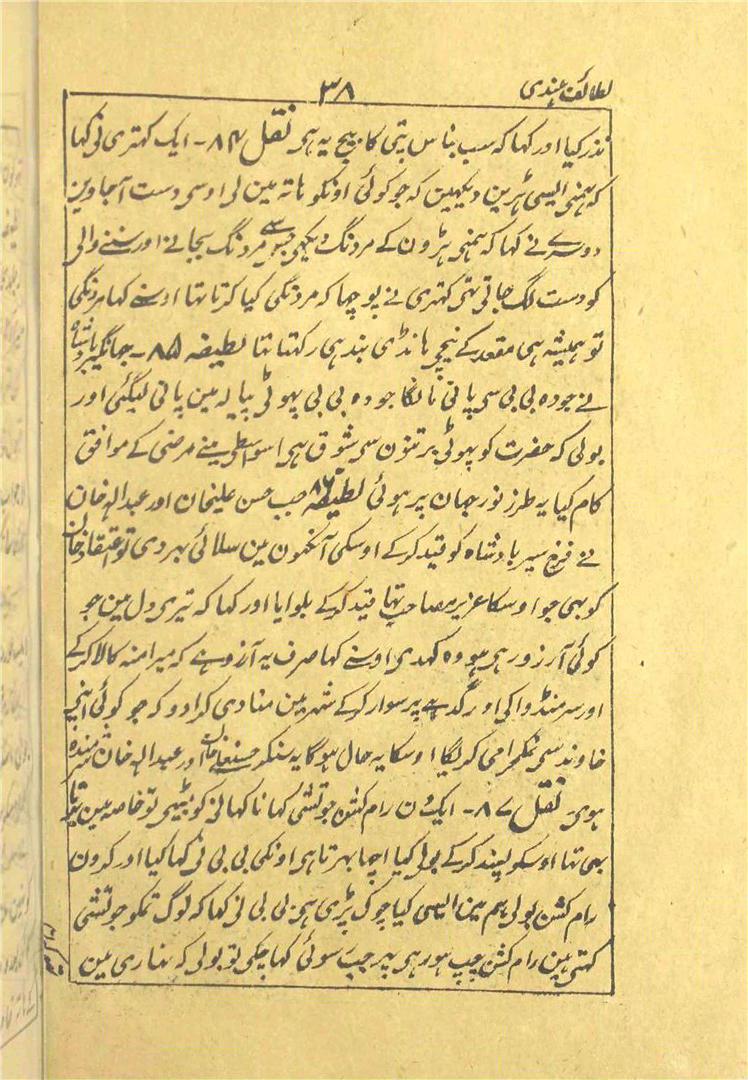 لطائف ہندی
۳۸
نذر کیا اور کہا کہ سب بناس پتی کا بیج یہ ہی نقل ۸۴ - ایک کہتری نی کہا
کہ ہمنی ایسی ہڑین دیکھین کہ جو کوئی اونکو ہاتہ مین لی اوسی دست آجاوین
دوسرے نے کہا کہ ہمنی ہڑون کے مردنگ دیکھی جس سے مردنگ بجانے اور سننے والی
کو دست لگ جاتی تہی کہتری نے پوچہا کہ مردنگی کیا کرتا تہا اوسنے کہا مردنگی
تو ہمیشہ ہی مقعد کے نیچی ہانڈی بند ہی رکہتا تہا لطیفہ ۸۵ - جہانگیر بادشاہ
نے جودہ بی بی سی پانی مانگا جودہ بی بی پہوٹی پیالہ مین پانی لیگئی اور
بولی کہ حضرت کو پہوٹی برتنون سی شوق ہی اسواسطی مینے مرضی کے موافق
کام کیا یہ طرز نور جہان پر ہوئی لطیفہ ۸۶ جب حسن علیخان اور عبداللہ خان
نے فرخ سیر بادشاہ کو قید کر کے اوسکی آنکہون مین سلائی بہر دی تو اعتقاد خان
کو بہی جو اوسکا عزیز مصاحب تہا قید کر کے بلوایا اور کہا کہ تیری دل مین جو
کوئی آرزو رہی ہو وہ کہدی اوسنے کہا صرف یہ آرزو ہے کہ میرا منہ کالا کر کے
اور سر منڈوا کی اور گدہے پر سوار کر کے شہر مین منادی کرا دو کہ جو کوئی اپنی
خاوند سی نمکحرامی کریگا اوسکا یہ حال ہوگا یہ سنکر حسنعلیخان اور عبداللہ خان شرمندہ
ہوی نقل ۸۷ - ایک دن رام کشن جوتشی کہانا کہانی کو بیٹہی تو خاصہ مین
بہی تہا اوسکو پسند کر کے بولی کیا اچہا بہرتا ہی اونکی بی بی نی کہا کیا اور کرون
رام کشن بولی ہم مین ایسی کیا چوک پڑی ہی بی بی نی کہا کہ لوگ تمکو جوتشی
کہتی ہین رام کشن چپ ہو رہی پہر جب سوئی کہا چکی تو بولی کہ ہناری مین